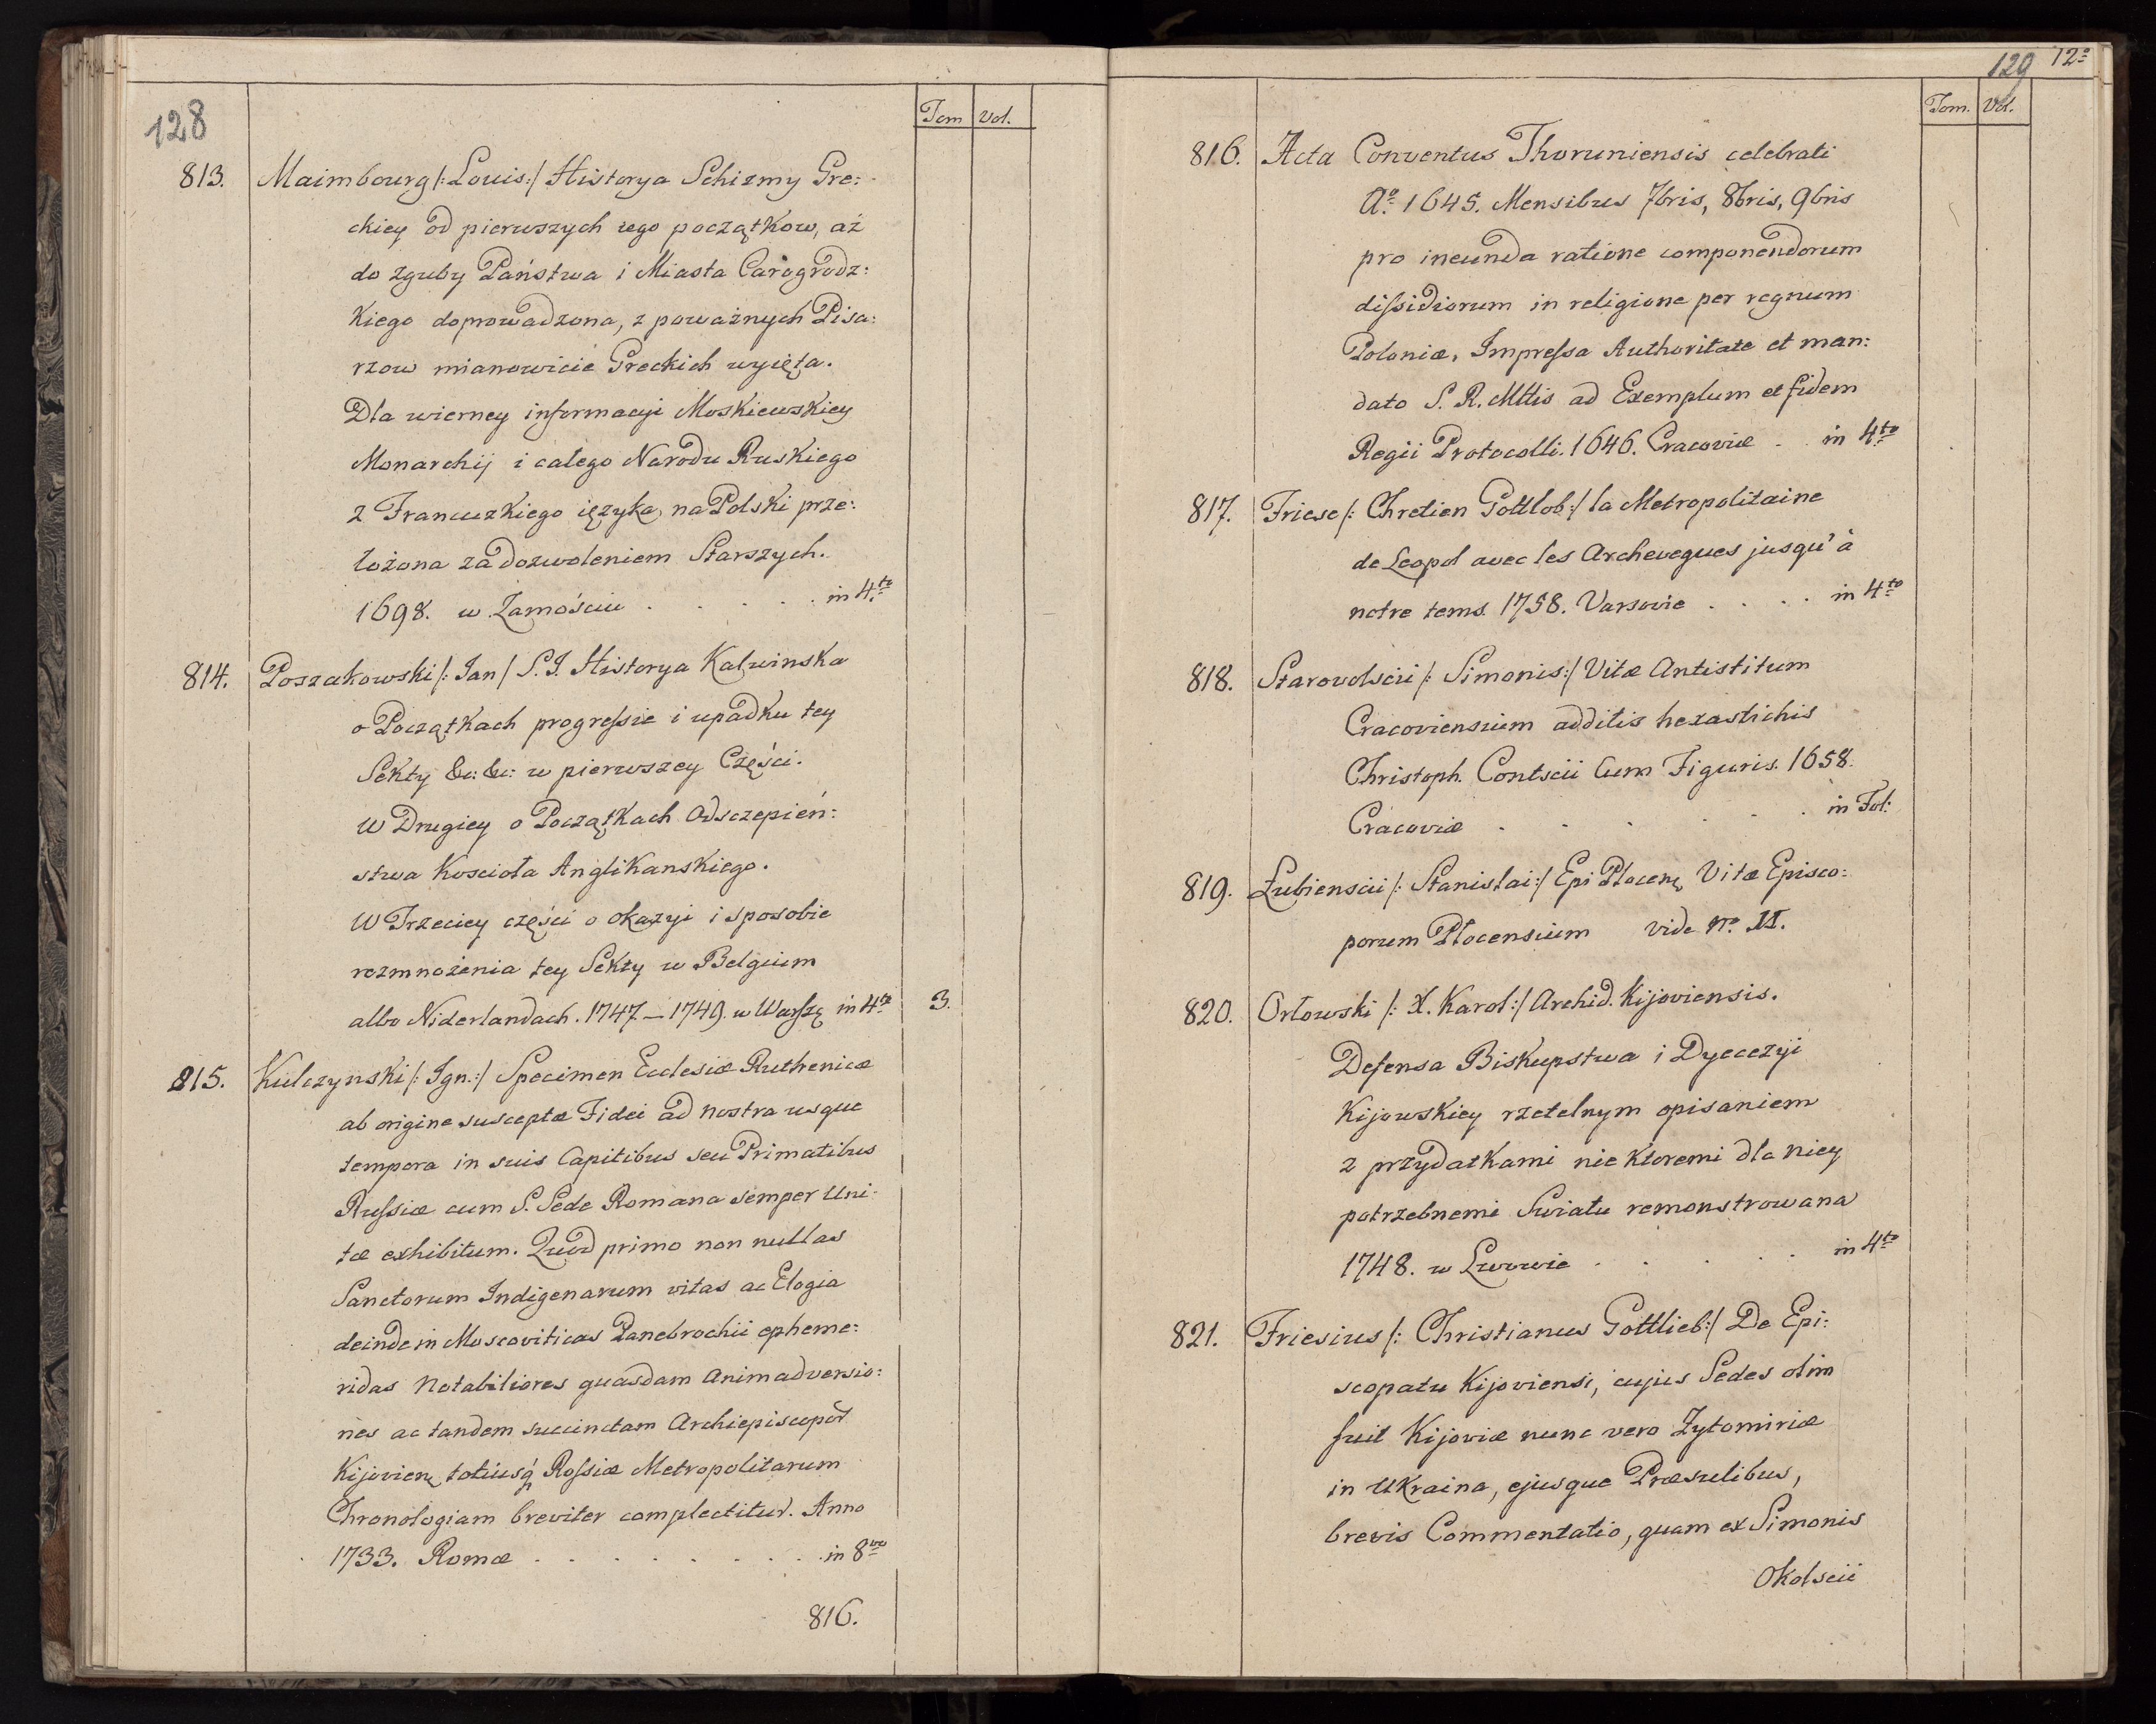 128
Tom Vol.
813. Maimbourg /: Louis :/ Historya Schizmy Gre:
ckiey od pierwszych iego początkow, aż
do zguby Państwa i Miasta Carogrodz:
kiego doprowadzona, z poważnych Pisa:
rzow mianowicie Greckich wyięta.
Dla wierney informacyi Moskiewskiey
Monarchij i całego Narodu Ruskiego
z Francuzkiego ięzyka na Polski prze:
łożona za dozwoleniem Starszych.
1698. w Zamościu . . . . . in 4to
814. Poszakowski /: Jan / S. J. Historya Kalwinska
o Początkach progreſsie i upadku tey
Sekty &c: &c: w pierwszey Części.
W Drugiey o Początkach Odszczepień:
stwa Koscioła Anglikanskiego.
W Trzeciey części o okazyi i sposobie
rozmnożenia tey Sekty w Belgium
albo Niderlandach. 1747. — 1749. w Warſzę in 4to 3.
815. Kulczynski /: Ign: :/ Specimen Ecclesiæ Ruthenicæ
ab origine susceptæ Fidei ad nostra usque
tempora in suis Capitibus seu Primatibus
Ruſsiæ cum S. Sede Romana semper Uni:
tæ exhibitum. Quod primo non nullas
Sanctorum Indigenarum vitas ac Elogia
deinde in Moscoviticas Panebrochii epheme:
ridas Notabiliores quasdam Animadversio:
nes ac tandem succinctam Archiepiscopor
Kijovien totiusq Roſsiæ Metropolitarum
Chronologiam breviter complectitur. Anno
1733. Romæ . . . . . . . . in 8vo
816.
129 12o
Tom. Vol.
816. Acta Conventus Thoruniensis celebrati
Ao. 1645. Mensibus 7bris, 8bris, 9bris
pro ineunda ratione componendorum
diſsidiorum in religione per regnum
Poloniæ, Impreſsa Authoritate et man:
dato S. R. Mttis ad Exemplum et fidem
Regii Protocolli. 1646. Cracoviæ . . in 4to
817. Friese /: Chretien Gottlob :/ la Metropolitaine
de Leopol avec les Archeveques jusqu'à
notre tems. 1758. Varsovie . . . . in 4to
818. Starovolscii /: Simonis :/ Vitæ Antistitum
Cracoviensium additis hexastichis
Christoph. Contscii Cum Figuris. 1658.
Cracoviæ . . . . . . in Fol:
819. Łubienscii /: Stanislai :/ Epi Plocen Vitæ Episco:
porum Plocensium vide No. II.
820. Orłowski /: X. Karol :/ Archid. Kijoviensis.
Defensa Biskupstwa i Dyecezyi
Kijowskiey rzetelnym opisaniem
z przydatkami nie ktoremi dla niey
potrzebnemi Swiatu remonstrowana
1748. w Lwowie . . . . . in 4to
821. Friesius /: Christianus Gottlieb :/ De Epi:
scopatu Kijoviensi, cujus Sedes olim
fuit Kijoviæ nunc vero Zytomiriæ
in Ukraina, ejusque Præsulibus,
brevis Commentatio, quam ex Simonis
Okolscii